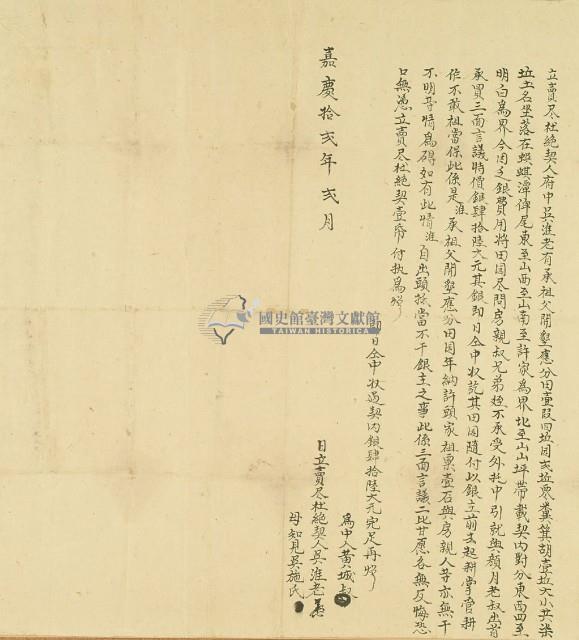 立賣尽杜絶契人府中吳淮老有承祖父開墾應分田壹段四坵园弍坵票糞箕胡壹坵大小共柒
坵土名坐落在蜈蜞潭俥尾東至山西至山南至許家為界北至山山坪帶載契內對分東西四至
明白為界今因乏銀費用將田园尽問房親叔兄弟姪不承受外托中引就與顏月老叔出首
承買三面言議時價銀肆拾陸大元其銀即日仝中收訖其田园隨付以銀主前去起耕掌管耕
作不敢祖當保此係是淮承祖父開墾應分田园年納許頭家祖粟壹石與房親人等亦無干
不明等情為碍如有此情淮自出頭抵當不干銀主之事此係三面言議二比甘愿各無反悔恐
口無憑立賣尽杜絶契壹帋付执為炤
即日仝中收過契內銀肆拾陸大元完足再炤
為中人黃城叔
日立賣尽杜絶契人吳淮老
母知見吳施氏
嘉慶拾弍年弍月
國史館臺灣文獻館
TAIWAN HISTORICA